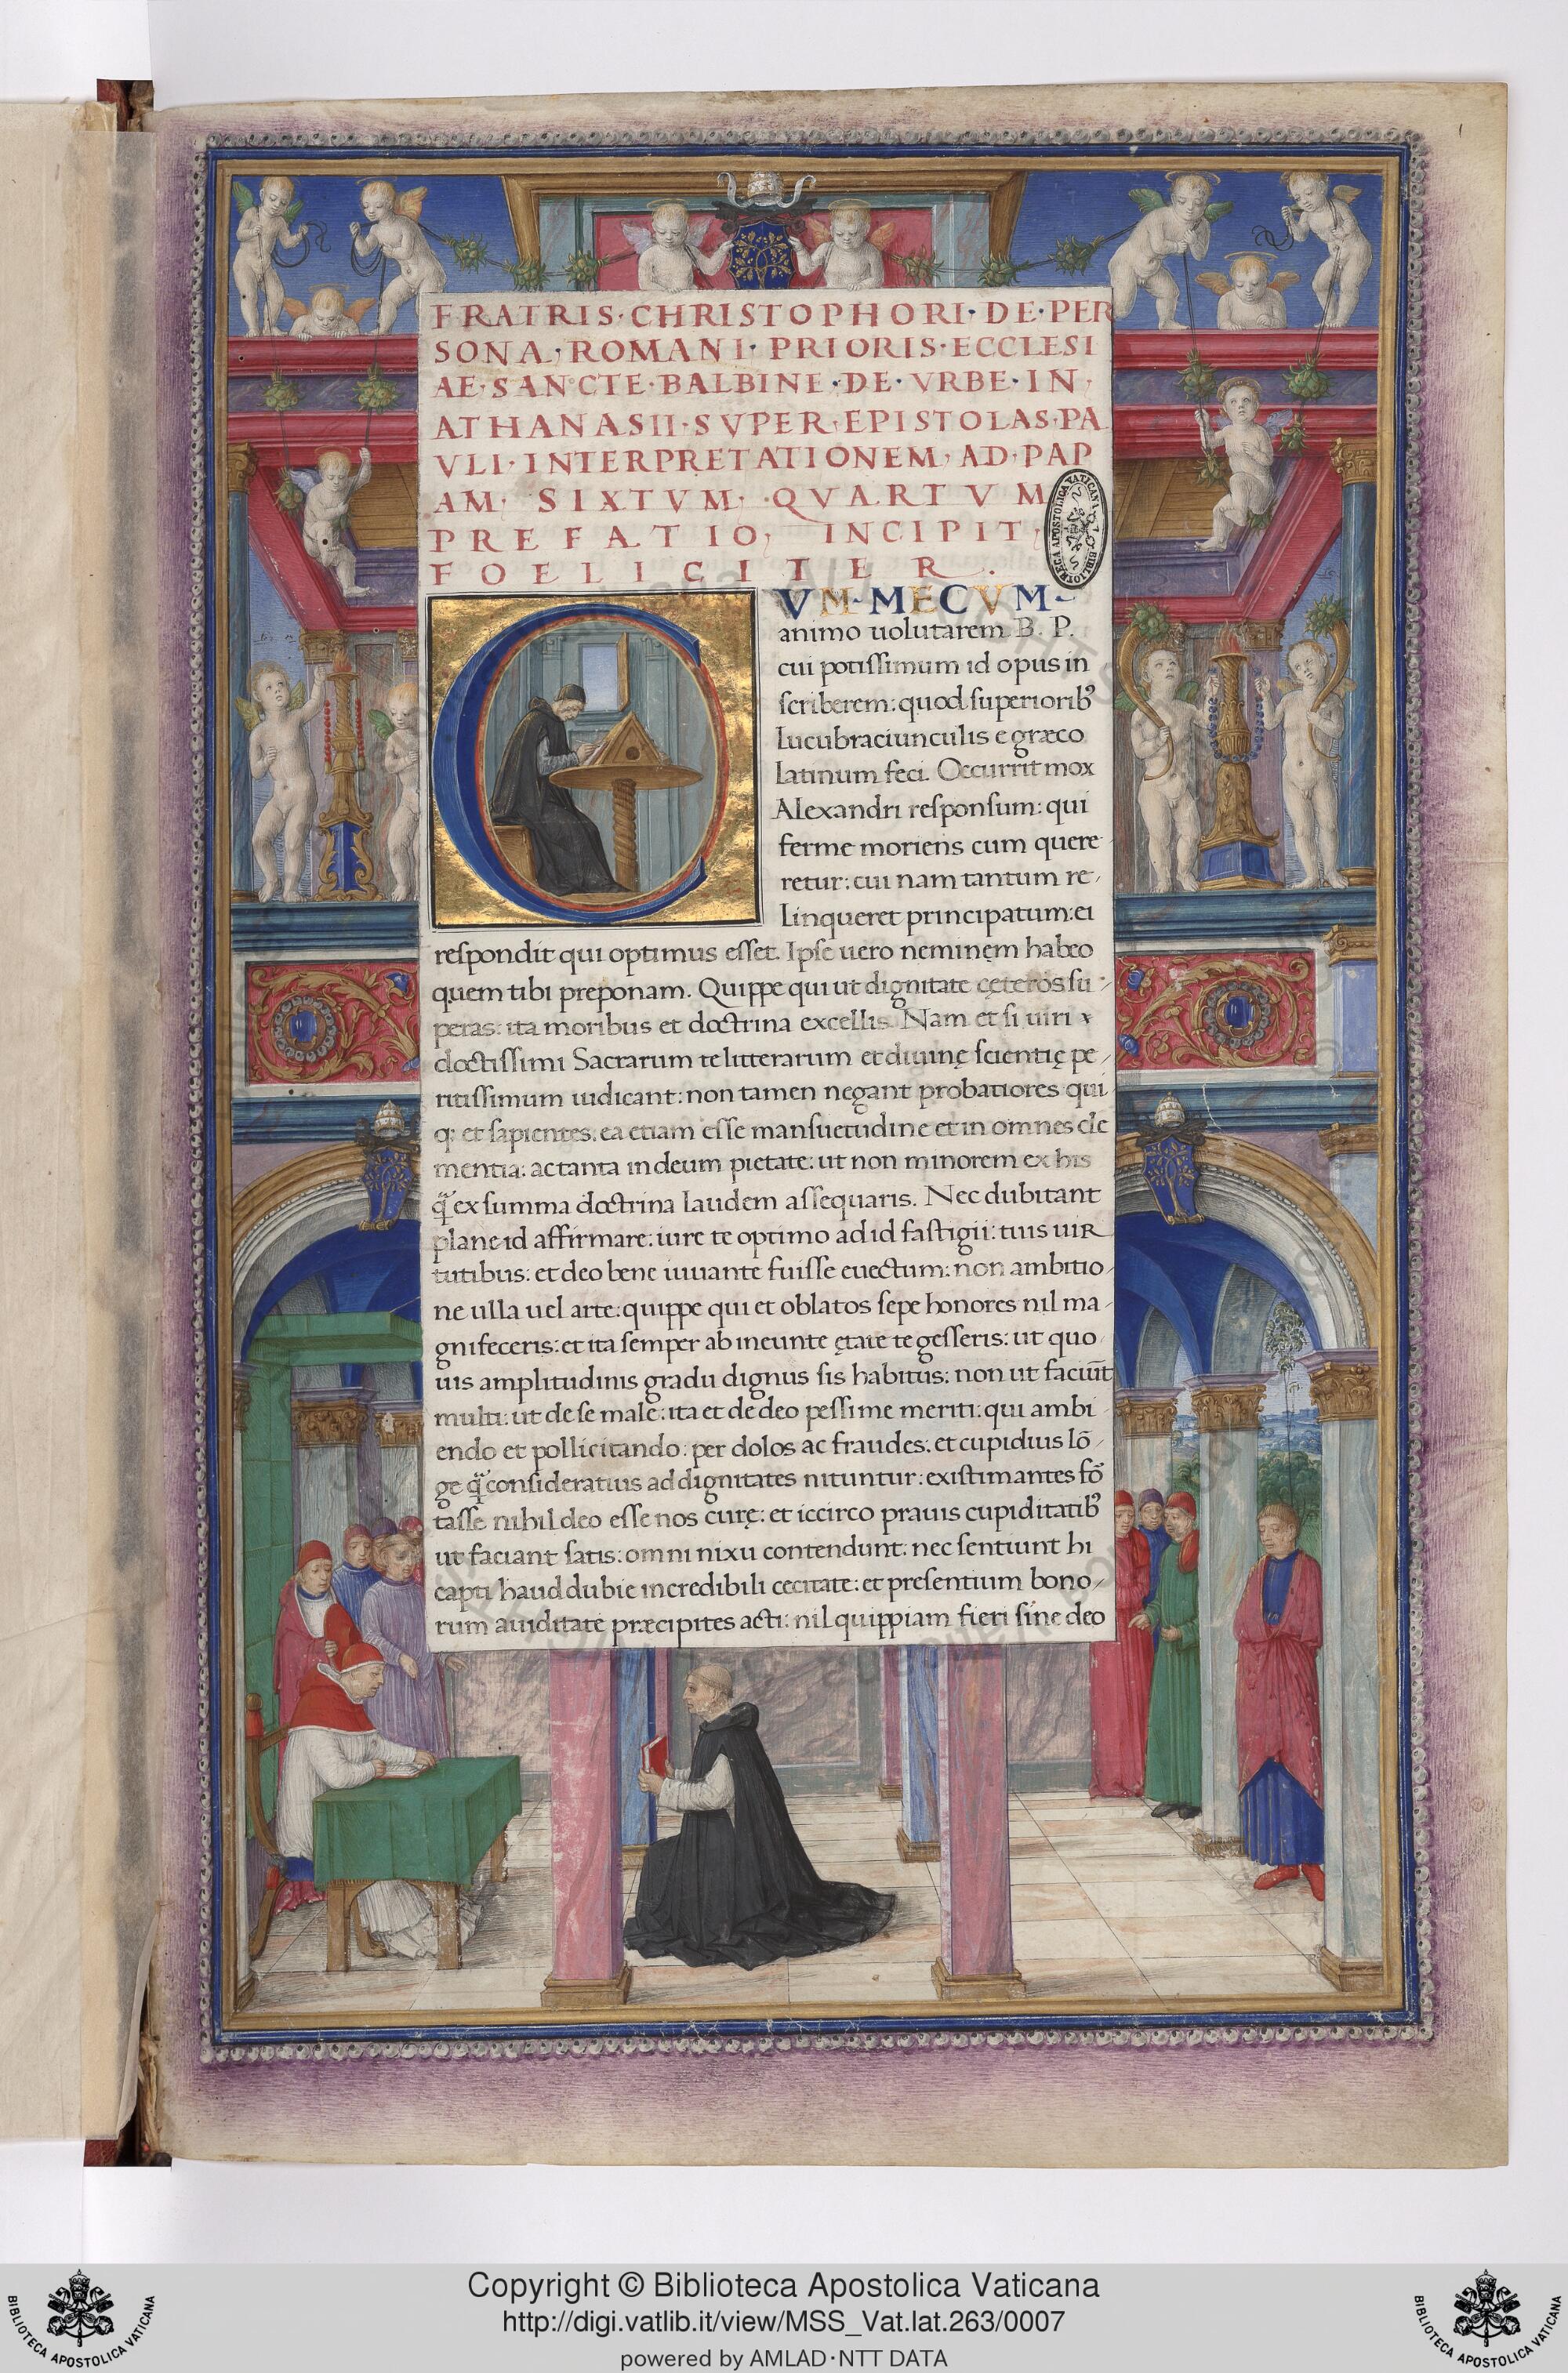 1
FRATRIS·CHRISTOPHORI·DE·PER
SONA·ROMANI·PRIORIS·ECCLESI
AE·SANCTE·BALBINE·DE·VRBE·IN
ATHANASII·SVPER·EPISTOLAS·PA
VLI·INTERPRETATIONEM·AD·PAP
AM·SIXTVM·QVARTVM
PREFATIO, INCIPIT,
FOELICITER.
VM·MECVM
animo uolutarem B. P.
cui potissimum id opus in
scriberem: quod superiorib᾿
Lucubraciunculis e græco
latinum feci. Occurrit mox
Alexandri responsum: qui
ferme moriens cum quere
retur: cui nam tantum re-
linqueret principatum: ei
respondit qui optimus esset. Ipse uero neminem habeo
quem tibi preponam. Quippe qui ut dignitate cęteros su-
peras: ita moribus et doctrina excellis. Nam et si uiri
doctissimi Sacrarum te litterarum et diuinę scientię pe-
ritissimum iudicant: non tamen negant probatiores qui
q; et sapientes. ea etiam esse mansuetudine et in omnes cle
mentia: ac tanta in deum pietate: ut non minorem ex his
q̃ ex summa doctrina laudem assequaris. Nec dubitant
plane id affirmare: iure te optimo ad id fastigii: tuis uir
tutibus: et deo bene iuuante fuisse euectum: non ambitio-
ne ulla uel arte: quippe qui et oblatos sepe honores nil ma-
gnifeceris: et ita semper ab ineunte ętate te gesseris: ut quo
uis amplitudinis gradu dignus sis habitus: non ut faciũt
multi: ut de se male: ita et de deo pessime meriti: qui ambi
endo et pollicitando: per dolos ac fraudes: et cupidius lõ-
ge q̃ consideratius ad dignitates nituntur: existimantes fõ
tasse nihil deo esse nos curę: et iccirco prauis cupiditatib᾿
ut faciant satis: omni nixu contendunt: nec sentiunt hi
capti haud dubie incredibili cecitate: et presentium bono-
rum auiditate præcipites acti: nil quippiam fieri sine deo
BIBLIOTECA APOSTOLICA VATICANA
Copyright © Biblioteca Apostolica Vaticana
http://digi.vatlib.it/view/MSS_Vat.lat.263/0007
powered by AMLAD·NTT DATA
BIBLIOTECA APOSTOLICA VATICANA
BIBLIOTECA APOSTOLICA VATICANA